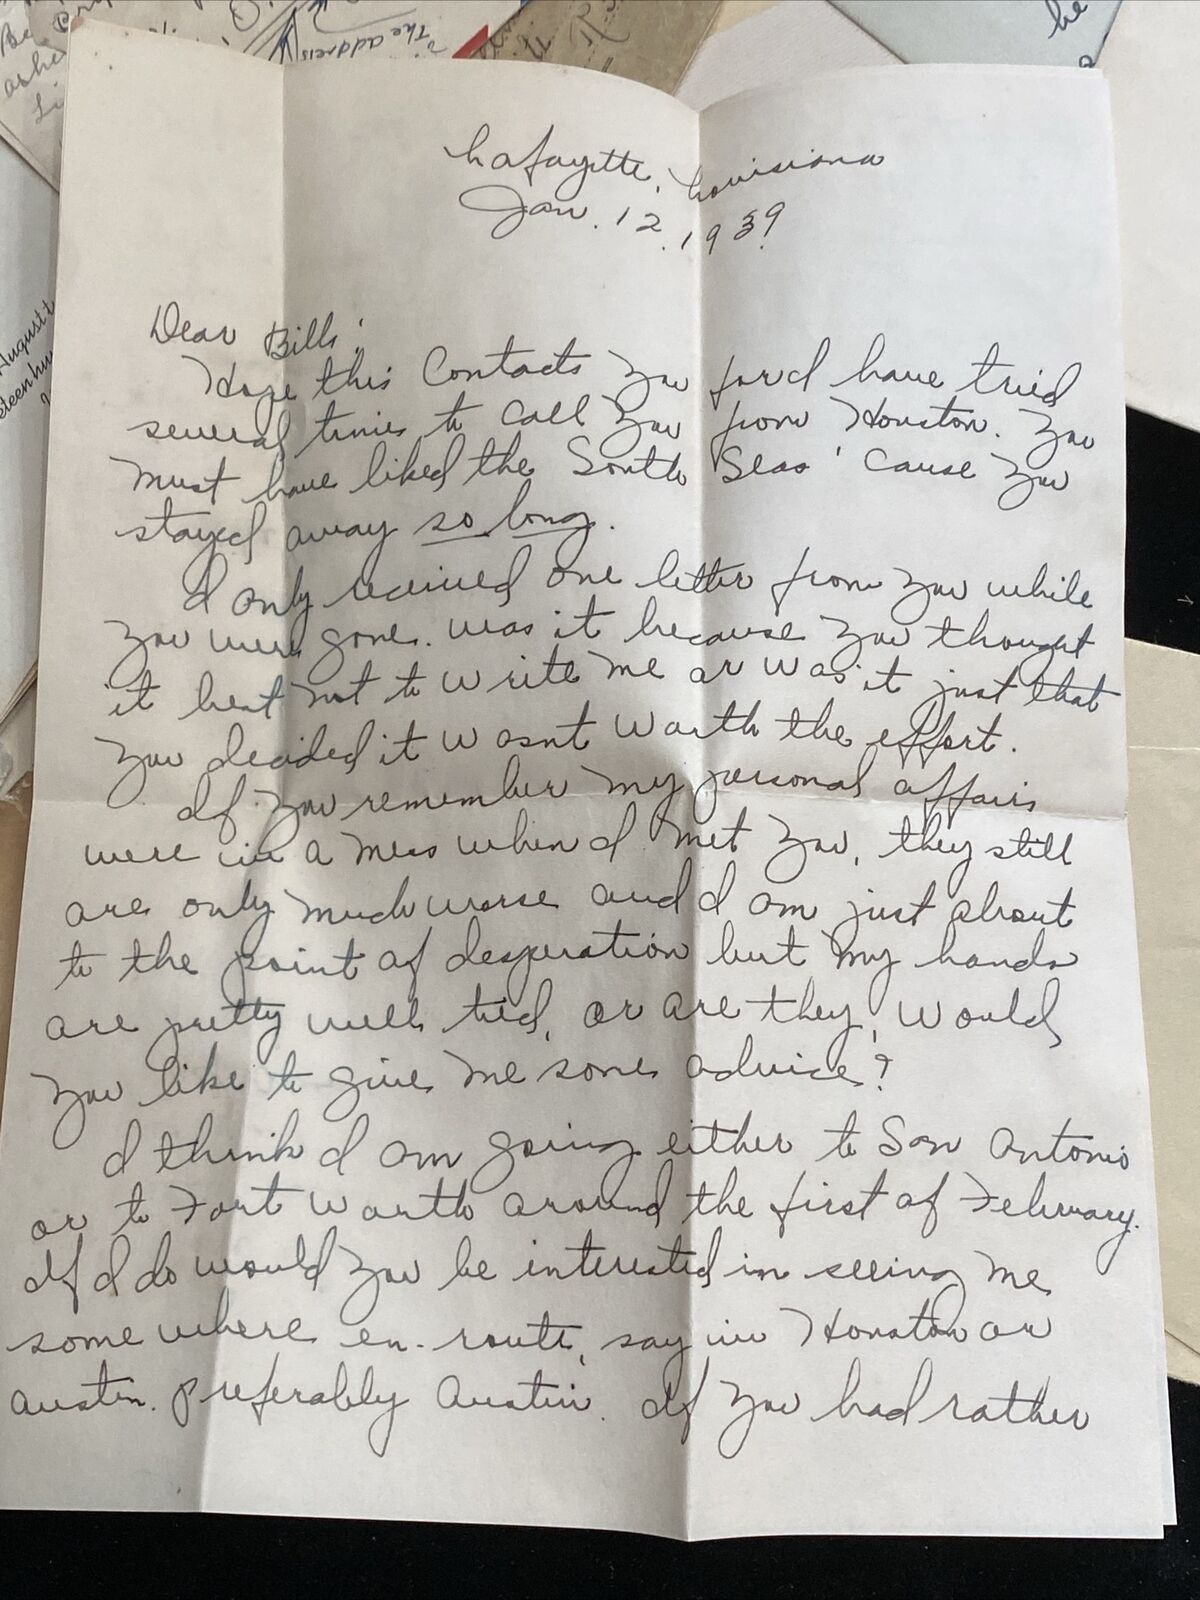 Lafayette, Louisiana
Jan. 12, 1939
Dear Bill:
Hope this Contacts you for I have tried
several times to call you from Houston. You
must have liked the South Seas 'cause you
stayed away so long.
I only received one letter from you while
you were gone. was it because you thought
it best not to write me or was it just that
you decided it wasnt worth the effort.
If you remember my personal affairs
were in a mess when I met you, they still
are only much worse and I am just about
to the point of desperation but my hands
are pretty well tied, or are they, would
you like to give me some advice?
I think I am going either to San Antonio
or to Fort Worth around the first of February.
If I do would you be interested in seeing me
some where en-route, say in Houston or
Austin. Preferably Austin. If you had rather
The address
August
be